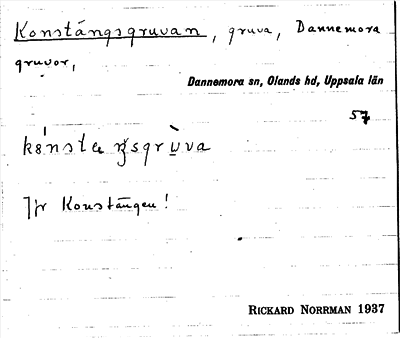 Konstångsgruvan, gruva, Dannemora
gruvor,
Dannemora sn, Olands hd, Uppsala län
57
Jfr Konstången!
RICKARD NORRMAN 1937